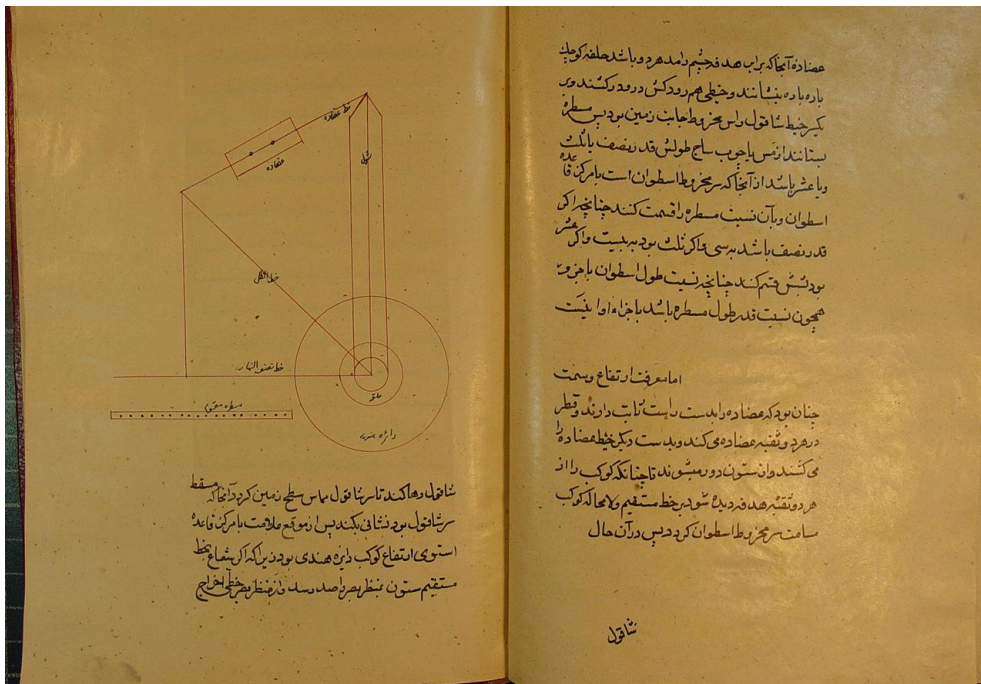 عضاده آنجا که برابر هدفه چشم را مد هر دو باشد حلقه کوچک
پاره پاره بنشانند و خیطی هم رود کش در و در کشند و در
یکسر خیط شاقول راس مخروط جانب زمین بود پس مسطرهٔ
بستانند از مس یا چوب ساج طولش قدر نصف یا ثلث
و یا عشر باشد از آنجا که سر مخروط اسطوان است با مرکز قاعده
اسطوان و بآن نسبت مسطره را قسمت کنند چنانچه اگر
قدر نصف باشد به سی و اگر ثلث بود به بیست و اگر عشر
بود بشش قسم کنند چنانچه نسبت طول اسطوان با جزو
همچون نسبت قدر طول مسطره باشد با جزاء او
اما معرفت ارتفاع و سمت
چنان بود که عضاده را بدست راست ثابت دارند و قطر
در هر دو ثقبه عضاده می کند و بدست دیگر خیط عضاده را
می کشند و از ستون دور میشوند تا چنانکه کوکب را از
هر دو ثقبه هدفه دیده شود بر خط مستقیم و لامحاله کوکب
مسامت سر مخروط اسطوان گردد پس در آن حال
شاقول
خط عضاده
عضاده
خط نصف النهار
مسطره
دائره هندی
شاقول رها کند تا سر شاقول مماس سطح زمین گردد آنجا که مسقط
سر شاقول بود نشانی بکند پس از موقع علامت با مرکز قاعده
استوی ارتفاع کوکب دایره هندی بود زیرا که اگر شعاع بخط
مستقیم ستون بمنظر بصر راصد رسد و از منظر بصر خطی اخراج